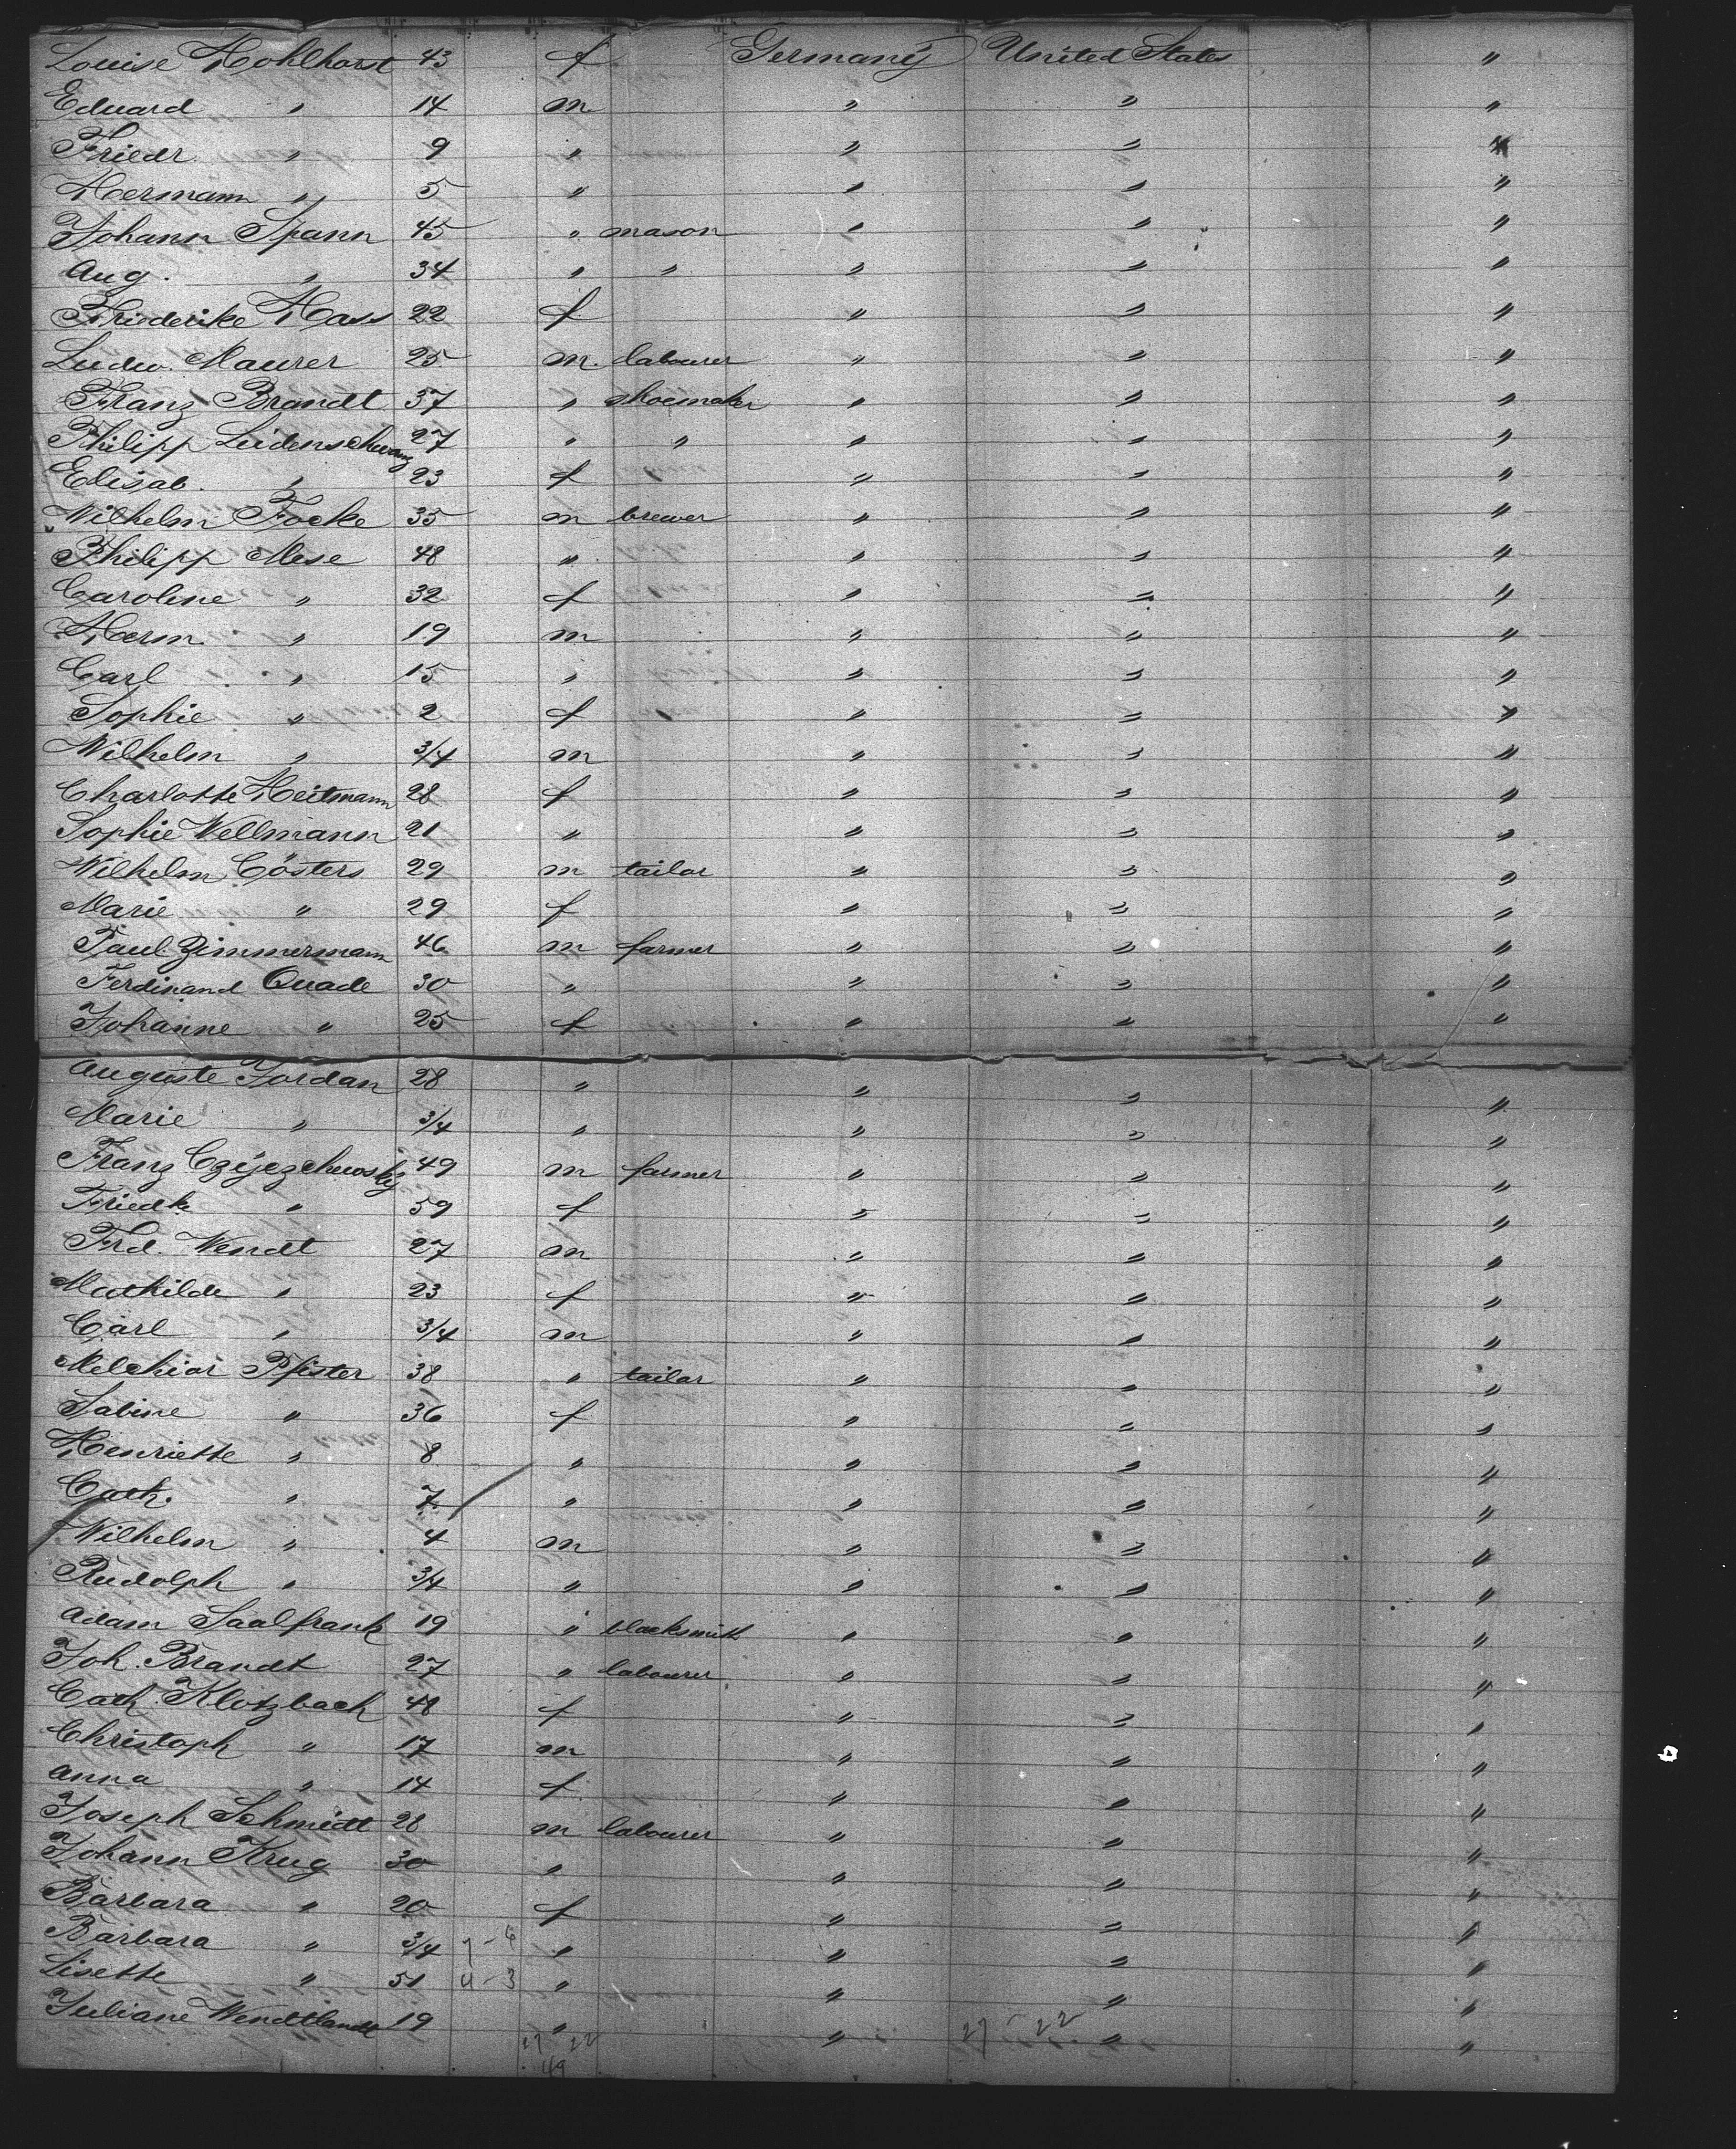 Louise Hohlhorst 43 f Germany United States "
Eduard " 14 m " " "
Friedr. " 9 " " " "
Hermann " 5 " " " "
Johann Spann 45 " mason " " "
Aug. " 34 " " " " "
Friederike Hass 22 f " " "
Ludw. Maurer 25 m. labourer " " "
Franz Brandt 37 " shoemaker " " "
Philipp Leidenschwang 27 " " " " "
Elisab. " 23 f " " "
Wilhelm Focke 35 m brewer " " "
Philipp Mese 48 " " " "
Caroline " 32 f " " "
Herm. " 19 m " " "
Carl " 15 " " " "
Sophie " 2 f " " "
Wilhelm " 3/4 m " " "
Charlotte Heitmann 28 f " " "
Sophie Wellmann 21 " " " "
Wilhelm Cösters 29 m tailor " " "
Marie " 29 f " " "
Paul Zimmermann 46 m farmer " " "
Ferdinand Quade 30 " " " "
Johanne " 25 f " " "
Auguste Jordan 28 " " " "
Marie " 3/4 " " " "
Franz Czyezchewsky 49 m farmer " " "
Friedke " 59 f " " "
Frd. Wendt 27 m " " "
Mathilde " 23 f " " "
Carl " 3/4 m " " "
Melchior Pfister 38 " tailor " " "
Sabine " 36 f " " "
Henriette " 8 " " " "
Cath. " 7 " " " "
Wilhelm " 4 m " " "
Rudolph " 3/4 " " " "
Adam Saalfrank 19 " blacksmith " " "
Joh. Brandt 27 " labourer " " "
Cath. Klotzbach 48 f " " "
Christoph " 17 m " " "
Anna " 14 f " " "
Joseph Schmidt 28 m labourer " " "
Johann Krug 30 " " " "
Barbara " 20 f " " "
Barbara " 3/4 7-6 " " " "
Lisette " 51 4-3 " " " "
Juliane Wendtlandt 19 " " " "
27 22 27-22
49